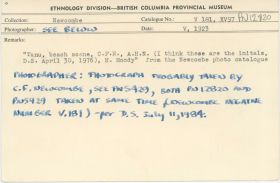 ETHNOLOGY DIVISION—BRITISH COLUMBIA PROVINCIAL MUSEUM
Collection: Newcombe Catalogue No.: V 181, XV97 PN12820
Photographer: SEE BELOW Date: V, 1923
Remarks:
"Tanu, beach scene, C.F.N., A.H.N. (I think these are the initals,
D.S. April 30, 1976), H. Moody" from the Newcombe photo catalogue
PHOTOGRAPHER: PHOTOGRAPH PROBABLY TAKEN BY
C.F. NEWCOMBE, SEE PN5429, BOTH PN12820 AND
PN5429 TAKEN AT SAME TIME (NEWCOMBE NEGATIVE
NUMBER V.181) - per D.S. July 11, 1984.